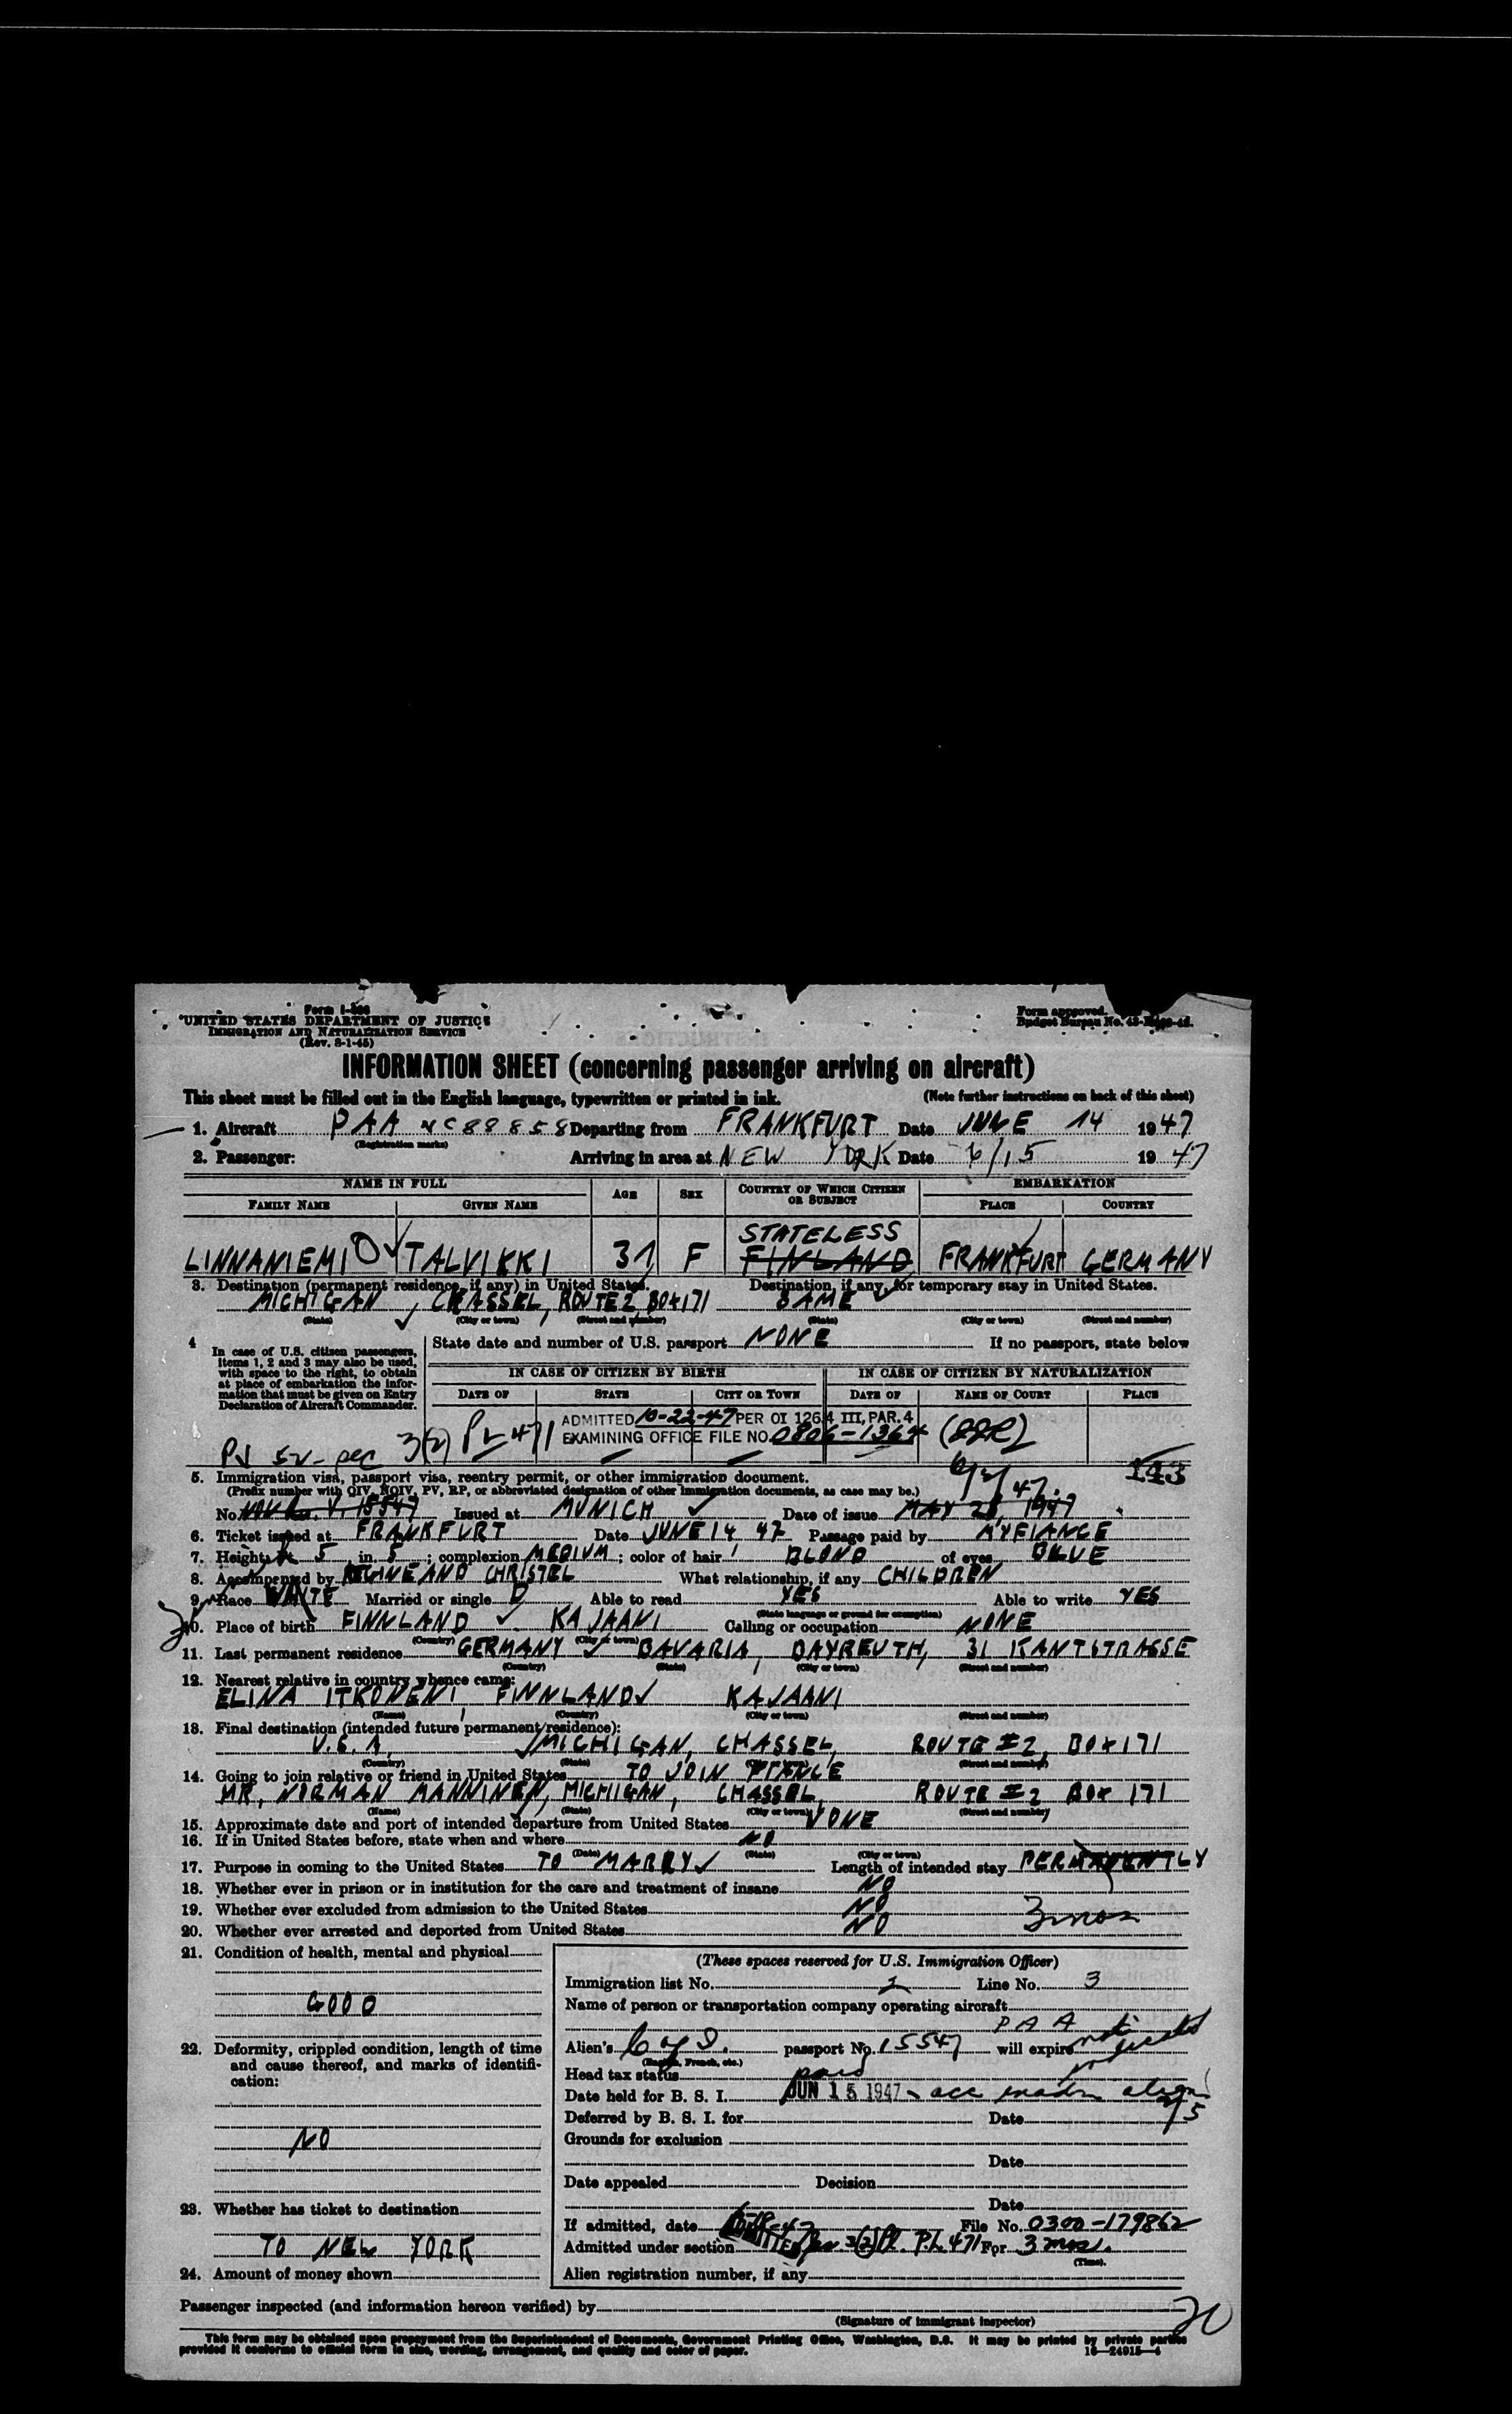 Form I-466
UNITED STATES DEPARTMENT OF JUSTICE
IMMIGRATION AND NATURALIZATION SERVICE
(Rev. 8-1-45)
Form approved.
Budget Bureau No.
INFORMATION SHEET (concerning passenger arriving on aircraft)
This sheet must be filled out in the English language, typewritten or printed in ink. (Note further instructions on back of this sheet)
1. Aircraft PAA NC88858 Departing from FRANKFURT Date JUNE 14 1947
(Registration marks)
2. Passenger: Arriving in area at NEW YORK Date 6/15 1947
NAME IN FULL AGE SEX COUNTRY OF WHICH CITIZEN OR SUBJECT EMBARKATION
FAMILY NAME GIVEN NAME PLACE COUNTRY
STATELESS
LINNANIEMI TALVIKKI 31 F FINLAND FRANKFURT GERMANY
3. Destination (permanent residence, if any) in United States. Destination, if any, for temporary stay in United States.
MICHIGAN, CHASSEL, ROUTE 2, BOX 171 SAME
(State) (City or town) (Street and number) (State) (City or town) (Street and number)
4 In case of U.S. citizen passengers, items 1, 2 and 3 may also be used, with space to the right, to obtain at place of embarkation the information that must be given on Entry Declaration of Aircraft Commander.
State date and number of U.S. passport NONE If no passport, state below
IN CASE OF CITIZEN BY BIRTH IN CASE OF CITIZEN BY NATURALIZATION
DATE OF STATE CITY OR TOWN DATE OF NAME OF COURT PLACE
ADMITTED 10-22-47 PER OI 126.4 III, PAR. 4
3(2) PL 471 EXAMINING OFFICE FILE NO. 0806-1364
143
5. Immigration visa, passport visa, reentry permit, or other immigration document.
(Prefix number with QIV, NQIV, PV, RP, or abbreviated designation of other immigration documents, as case may be.)
No. V. 15547 Issued at MUNICH Date of issue MAY 28, 1947
6. Ticket issued at FRANKFURT Date JUNE 14 47 Passage paid by MY FIANCE
7. Height, ft. 5 in. 5; complexion MEDIUM; color of hair BLOND of eyes BLUE
8. Accompanied by REGINE AND CHRISTEL What relationship, if any CHILDREN
9. Race WHITE Married or single D Able to read YES Able to write YES
(State language or ground for exemption)
10. Place of birth FINNLAND KAJAANI Calling or occupation NONE
(Country) (City or town)
11. Last permanent residence GERMANY BAVARIA, BAYREUTH, 31 KANTSTRASSE
(Country) (State) (City or town) (Street and number)
12. Nearest relative in country whence came:
ELINA ITKONEN, FINNLAND KAJAANI
(Name) (Country) (City or town) (Street and number)
13. Final destination (intended future permanent residence):
U.S.A. MICHIGAN, CHASSEL, ROUTE #2, BOX 171
(Country) (State) (City or town) (Street and number)
14. Going to join relative or friend in United States TO JOIN FIANCE
MR. NORMAN MANNINEN, MICHIGAN, CHASSEL, ROUTE #2 BOX 171
(Name) (State) (City or town) (Street and number)
15. Approximate date and port of intended departure from United States NONE
16. If in United States before, state when and where NO
(Date) (State) (City or town)
17. Purpose in coming to the United States TO MARRY Length of intended stay PERMANENTLY
18. Whether ever in prison or in institution for the care and treatment of insane NO
19. Whether ever excluded from admission to the United States NO
3 mos
20. Whether ever arrested and deported from United States NO
21. Condition of health, mental and physical
GOOD
22. Deformity, crippled condition, length of time and cause thereof, and marks of identification:
NO
23. Whether has ticket to destination
TO NEW YORK
24. Amount of money shown
(These spaces reserved for U.S. Immigration Officer)
Immigration list No. 1 Line No. 3
Name of person or transportation company operating aircraft
PAA
Alien's passport No. 15547 will expire
(English, French, etc.)
Head tax status paid
Date held for B. S. I. JUN 15 1947
Deferred by B. S. I. for Date
Grounds for exclusion
Date
Date appealed Decision
Date
If admitted, date File No. 0300-179862
Admitted under section 3(2) P.L. 471 For 3 mos.
(Time)
Alien registration number, if any
Passenger inspected (and information hereon verified) by
(Signature of immigrant inspector)
20
This form may be obtained upon prepayment from the Superintendent of Documents, Government Printing Office, Washington, D.C. It may be printed by private parties
provided it conforms to official form in size, wording, arrangement, and quality and color of paper. 16—24915-4